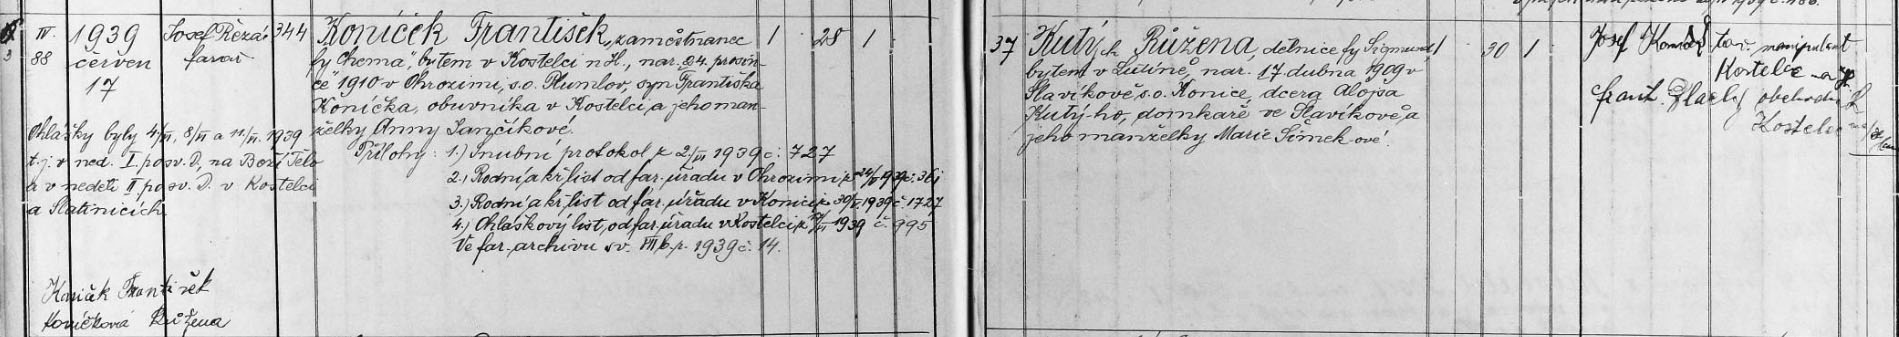 IV. 1939 Josef Řezáč 344
88 červen farář
17
Ohlášky byly 4/VI, 8/VI a 11/VI. 1939
t.j. v ned. I. po sv. D. na Boží Tělo
a v neděli II po sv. D. v Kostelci
a Slatinicích
Koníček František
Koníčková Růžena
Koníček František, zaměstnanec 1 28 1
fy Chema", bytem v Kostelci n H., nar. 24. prosin-
ce 1910 v Ohrozimi, s.o. Plumlov, syn Františka
Koníčka, obuvníka v Kostelci, a jeho man-
želky Anny Jančíkové.
Přílohy: 1.) Snubní protokol z 2/VI 1939 č. 727
2.) Rodní a kř. list od far. úřadu v Ohrozimi
3.) Rodní a kř. list od far. úřadu v Konici z 30/V. 1939 č. 1727
4.) Ohláškový list, od far. úřadu v Kostelci 1939 č. 995
Ve far. archivu sv. VIII b, r. 1939 č. 14.
37 Kutý ch Růžena, dělnice fy Sigmund 1 30 1
bytem v Lutíně, nar. 17. dubna 1909 v
Slavíkově s.o. Konice, dcera Aloisa
Kutý-ho, domkaře ve Slavíkově, a
jeho manželky Marie Šimek ové.
Josef Koníček tov. manipulant
Kostelec na H.
Frant. obchodní
Kostelec na